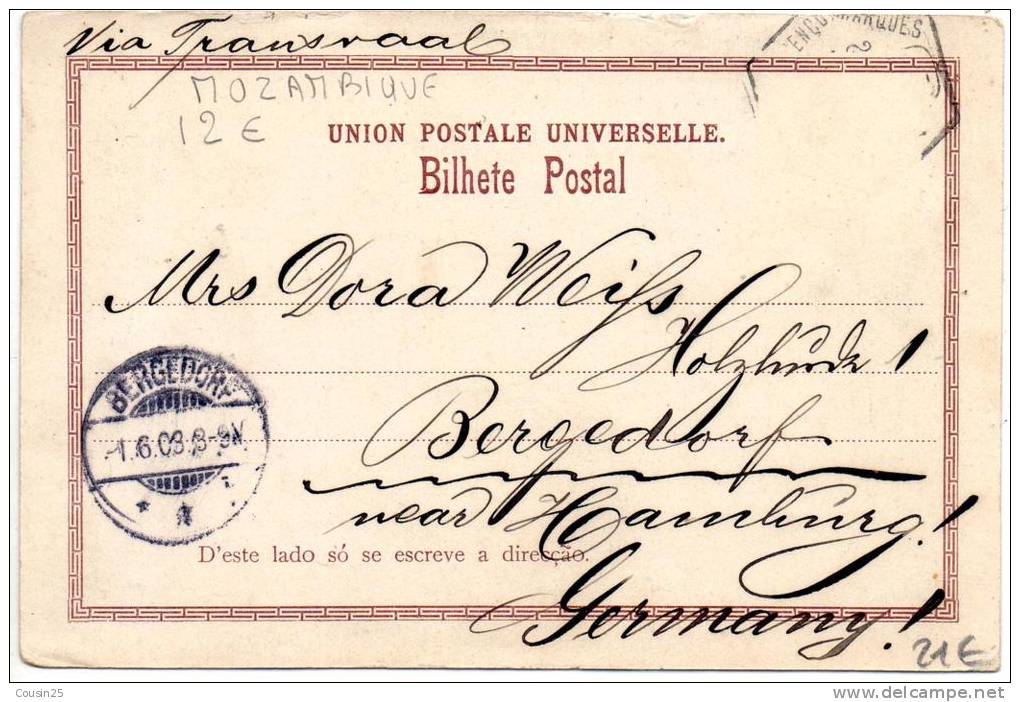 Via Transvaal
ENÇO MARQUES
2
MOZAMBIQUE
12 €
UNION POSTALE UNIVERSELLE.
Bilhete Postal
Mrs Dora Weiſs
1
BERGEDORF
-1.6.03.8-9N
Bergedorf
near Hamburg!
D'este lado só se escreve a direcção.
Germany!
21€
Cousin25
http://www.delcampe.net